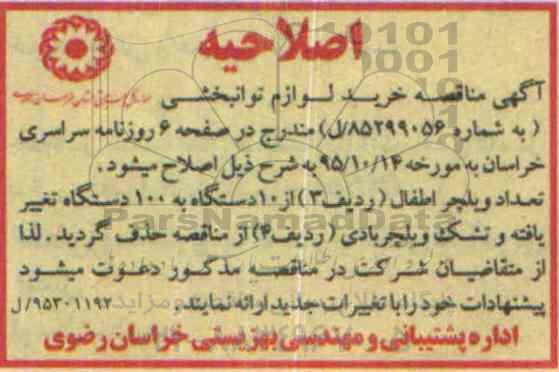 اصلاحیه
آگهی مناقصه خرید لوازم توانبخشی
( به شماره ۸۵۲۹۹۰۵۶/ل) مندرج در صفحه ۶ روزنامه سراسری
خراسان به مورخه ۹۵/۱۰/۱۴ به شرح ذیل اصلاح میشود .
تعداد ویلچر اطفال ( ردیف۳) از ۱۰ دستگاه به ۱۰۰ دستگاه تغییر
یافته و تشک ویلچر بادی ( ردیف۴) از مناقصه حذف گردید . لذا
از متقاضیان شرکت در مناقصه مذکور دعوت میشود
پیشنهادات خود را با تغییرات جدید ارائه نمایند.
۹۵۳۰۱۱۹۲/ل
اداره پشتیبانی و مهندسی بهزیستی خراسان رضوی
ParsNamadData